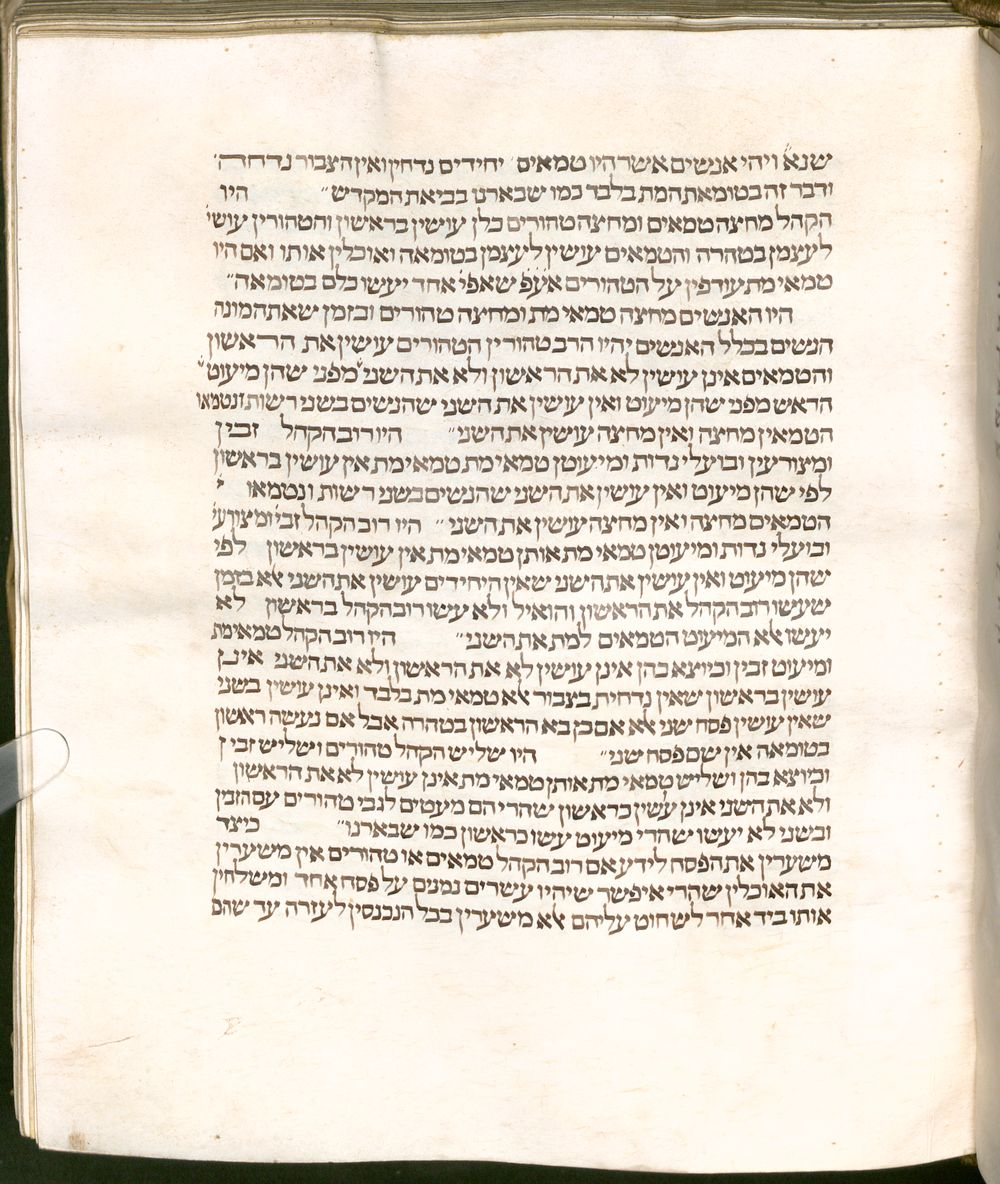 שנא' ויהי אנשים אשר היו טמאים יחידים נדחין ואין הצבור נדחה'
ודבר זה בטומאת המת בלבד כמו שבארנו בביאת המקדש״ היו
הקהל מחצה טמאים ומחצה טהורים כלן עושין בראשון והטהורין עושי'
לעצמן בטהרה והטמאים עושין לעצמן בטומאה ואוכלין אותו ואם היו
טמאי מת עודפין על הטהורים אעפ שאפי' אחד יעשו כלם בטומאה״
היו האנשים מחצה טמאי מת ומחצה טהורים ובזמן שאת המונה
הנשים בכלל האנשים יהיו הרב טהורין הטהורים עושין את הראשון
והטמאים אינן עושין לא את הראשון ולא את השני מפני שהן מיעוט
הראש מפני שהן מיעוט ואין עושין את השני שהנשים בשני רשות ונטמאו
הטמאין מחצה ואין מחצה עושין את השני״ היו רוב הקהל זבין
ומצורעין ובועלי נדות ומיעוטן טמאי מת טמאי מת אין עושין בראשון
לפי שהן מיעוט ואין עושין את השני שהנשים בשני רשות ונטמאו
הטמאים מחצה ואין מחצה עושין את השני״ היו רוב הקהל זבי' ומצורעי'
ובועלי נדות ומיעוטן טמאי מת אותן טמאי מת אין עושין בראשון לפי
שהן מיעוט ואין עושין את השני שאין היחידים עושין את השני אלא בזמן
שעשו רוב הקהל את הראשון והואיל ולא עשו רוב הקהל בראשון לא
יעשו אלא המיעוט הטמאים למת את השני״ היו רוב הקהל טמאי מת
ומיעוט זבין וכיוצא בהן אינן עושין לא את הראשון ולא את השני אינן
עושין בראשון שאין נדחית בצבור אלא טמאי מת בלבד ואינן עושין בשני
שאין עושין פסח שני אלא אם כן בא הראשון בטהרה אבל אם נעשה ראשון
בטומאה אין שם פסח שני״ היו שליש הקהל טהורים ושליש זבין
וכיוצא בהן ושליש טמאי מת אותן טמאי מת אינן עושין לא את הראשון
ולא את השני אינן עשין בראשון שהרי הם מעטים לגבי טהורים עם הזבין
ובשני לא יעשו שהרי מיעוט עשו בראשון כמו שבארנו״ כיצד
משערין את הפסח לידע אם רוב הקהל טמאים או טהורים אין משערין
את האוכלין שהרי איפשר שיהיו עשרים נמנים על פסח אחד ומשלחין
אותו ביד אחד לשחוט עליהם אלא משערין בכל הנכנסין לעזרה עד שהם